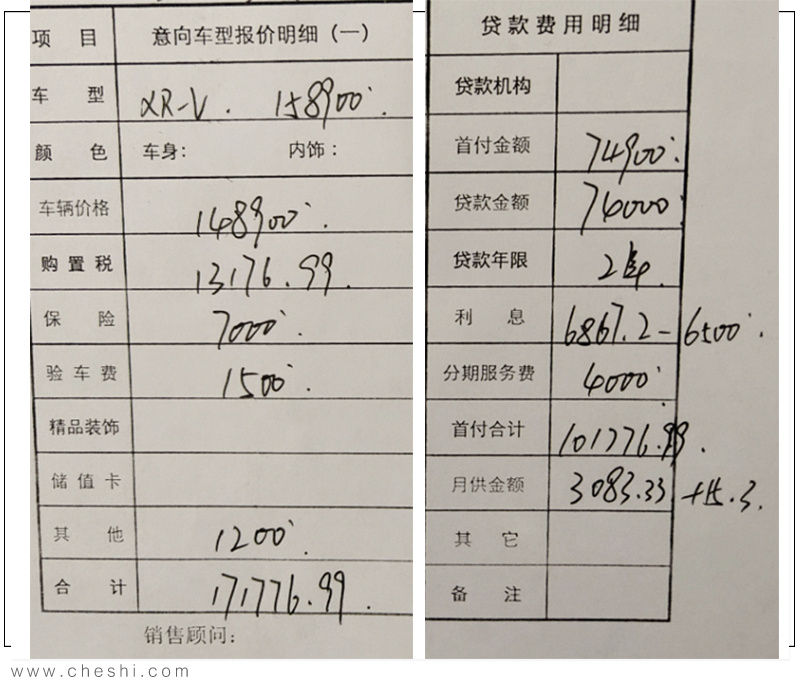 项 目 意向车型报价明细（一）
车 型 XR-V. 158900.
颜 色 车身： 内饰：
车辆价格 148900.
购置税 13176.99.
保 险 7000.
验车费 1500.
精品装饰
储值卡
其 他 1200.
合 计 171776.99.
销售顾问：
贷款费用明细
贷款机构
首付金额 74900.
贷款金额 74000
贷款年限 2年.
利 息 6867.2-6500.
分期服务费 4000.
首付合计 101776.99.
月供金额 3083.33
其 它
备 注
www.cheshi.com